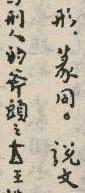 形。篆同。說文
刑人的斧頭之古王